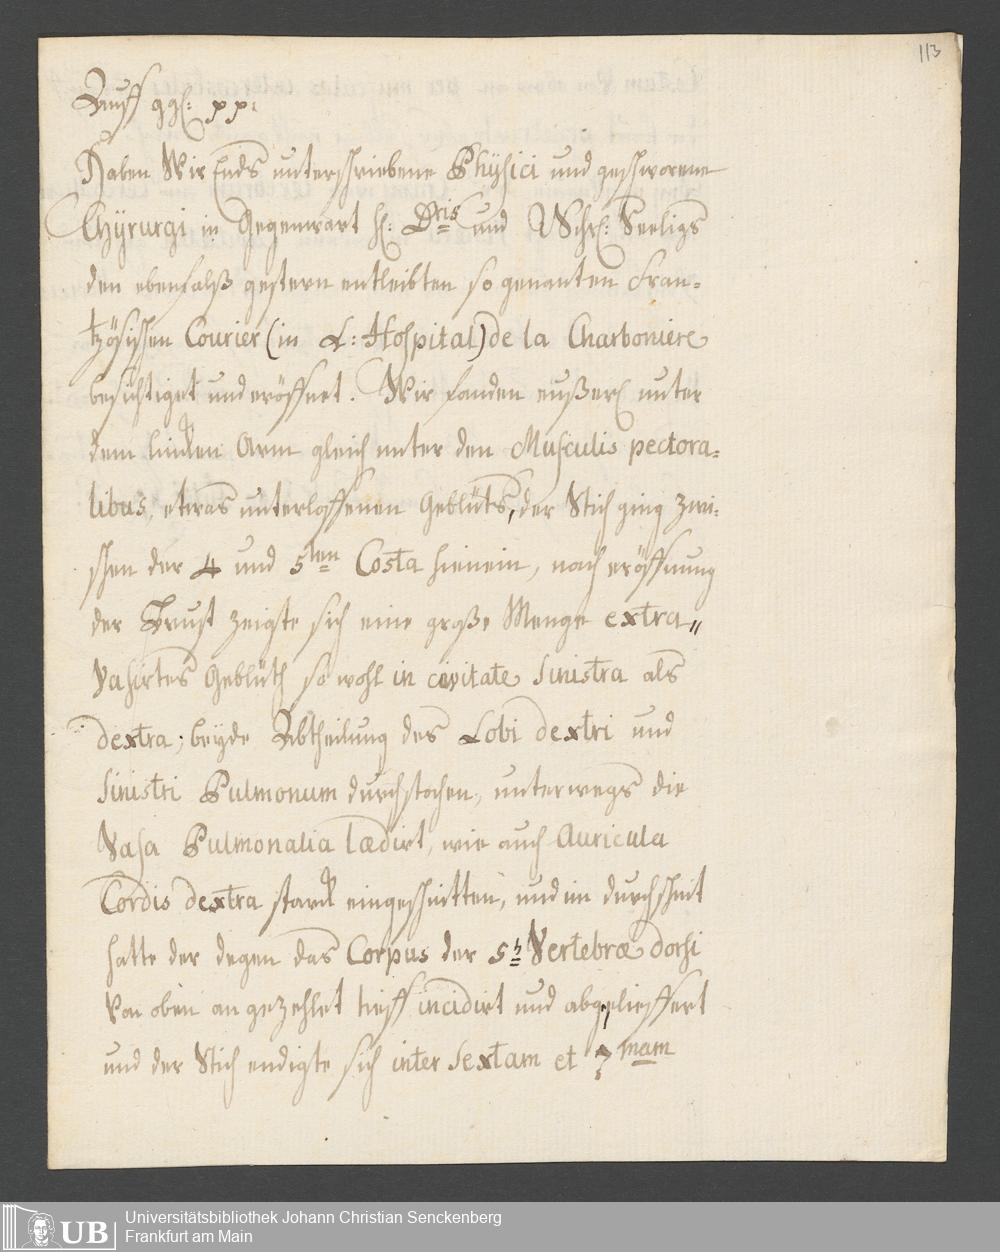 113
Auff ggl: pp:
Haben Wir Ends unterschriebene Physici und geschworene
Chyrurgi in Gegenwart H: Dris und Seeligs
den ebenfalß gestern entleibten so genanten Fran-
tzösischen Courier (in L: Hospital) de la Charboniere
besichtiget und eröffnet. Wir fanden eußerl unter
dem lincken Arm gleich unter den Musculis pectora-
libus, etwas unterloffenen Geblüts, der Stich ging zwi-
schen der 4 und 5ten Costa hienein, nach eröffnung
der Brust zeigte sich eine große Menge extra„
vasirtes Geblüth so wohl in civitate sinistra als
dextra; beyde Abtheilung des Lobi dextri und
sinistri Pulmonum durchstochen, unterwegs die
Vasa Pulmonalia lædirt, wie auch Auricula
Cordis dextra starck eingeschnitten, und im durchschnit
hatte der degen das Corpus der 5t Vertebræ dorsi
Von oben an gezehlet tieff incidirt und abgelieffert
und der Stich endigte sich inter sextam et 7mam
UB
Universitätsbibliothek Johann Christian Senckenberg
Frankfurt am Main